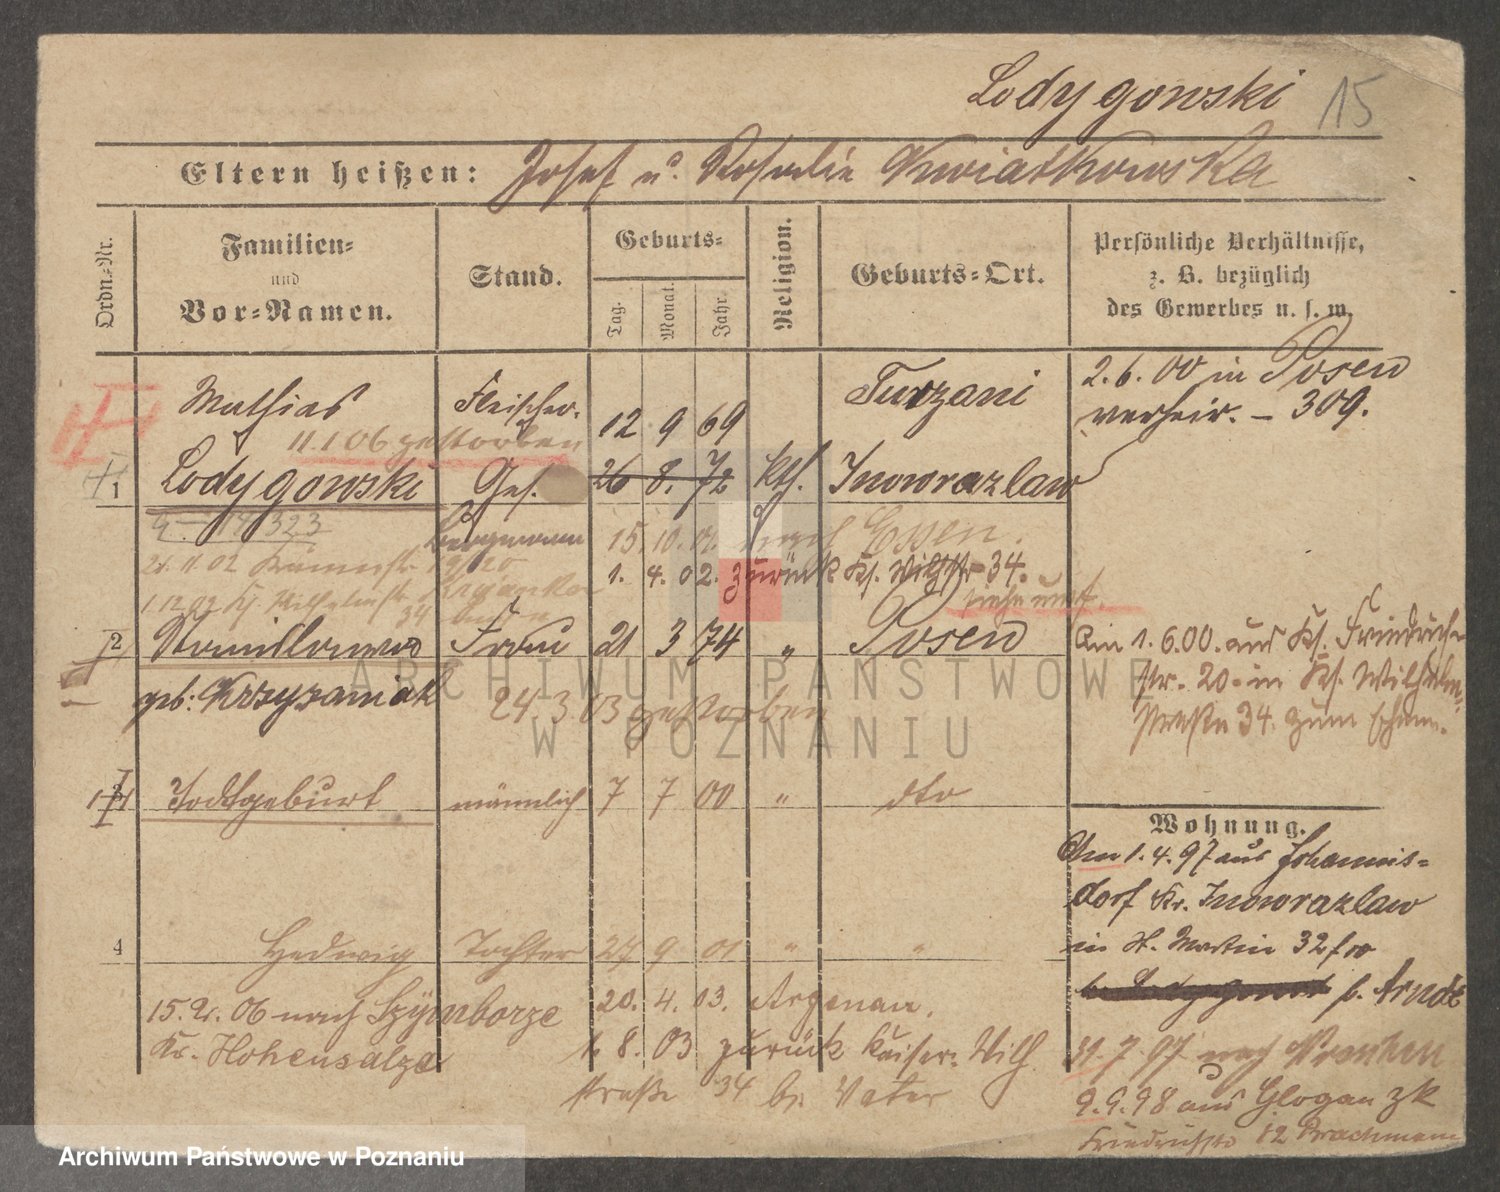 Lodygowski 15
Eltern heißen: Josef u. Rosalie Kwiatkowska
Ordn.-Nr.
Familien- und Vor-Namen.
Stand.
Geburts-
Tag. Monat. Jahr.
Religion.
Geburts-Ort.
Persönliche Verhältnisse,
z. B. bezüglich
des Gewerbes u. s. w.
Mathias Fleischer. 12 9 69 Turzani
2.6.00 in Posen
verheir. – 309.
11.1.06 gestorben
1 Lodygowski Ges. 26 8. 72 kth. Inowrazlaw
323 Bergmann 15. 10. nach Essen.
21.11.02
1. 4. 02. zurück Ks. Wilhstr 34.
1.12.02 Ks. Wilhelmstr 34
siehe umst.
2 Stanislawa Frau 21 3 74 " Posen
geb: Krzyzaniak 24 3 03 gestorben
Am 1.6.00. aus Ks. Friedrich-
str. 20. in Ks. Wilhelm-
straße 34. zum
3 Todtgeburt männlich 7 7 00 " dto
Wohnung.
Am 1.4.97 aus Johannis-
dorf Kr. Inowrazlaw
in St. Martin 32
b. Arndt
4 Hedwig Tochter 24 9 01 " "
15. 06 nach Szymborze 20. 4. 03. Argenau.
Kr. Hohensalza 1. 8. 03 zurück Kaiser. Wilh
straße 34 b. Vater
31.7.97 nach
9.9.98 aus Glogau zk
Friedrichstr 12
ARCHIWUM PAŃSTWOWE
W POZNANIU
Archiwum Państwowe w Poznaniu